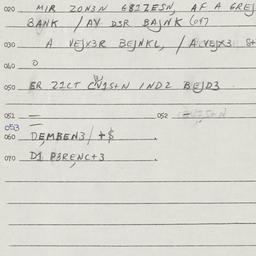 020 MIR ZON3N GB1ZESN, AF A GREJ
BANK / AV D3R BAJNK (
030 A VEJX3R BEJNKL, / A VEJX3
040 0
050 ER Z1CT IND2 BEJD3
051 — 052
053
060 DEMBEN3/+$
070 D1 P3RENC+3